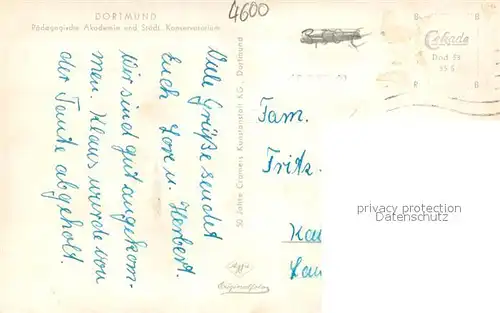 DORTMUND
Pädagogische Akademie und Städt. Konservatorium
4600
Viele Grüße sendet
Euch Lore u. Herbert.
Wir sind gut angekom-
men. Klaus wurde von
der Tante abgeholt.
50 Jahre Cramers Kunstanstalt KG., Dortmund
Agfa
Originalfoto
Cekade
Dtmd Ex
55 S
B
R
B
Fam.
Fritz
privacy protection
Datenschutz